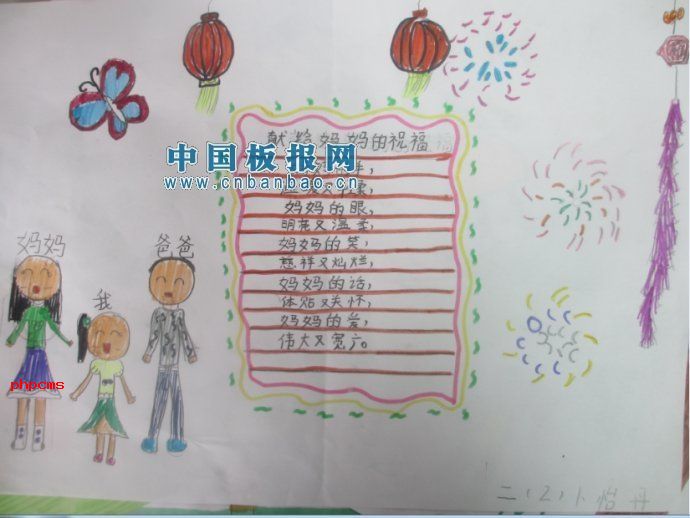 献给妈妈的祝福
中国板报网
www.cnbanbao.cn
妈妈的眼，
明亮又温柔，
妈妈的笑，
慈祥又灿烂，
妈妈的话，
体贴又关怀，
妈妈的爱，
伟大又宽广。
妈妈
爸爸
我
phpcms
二（2）卜怡丹